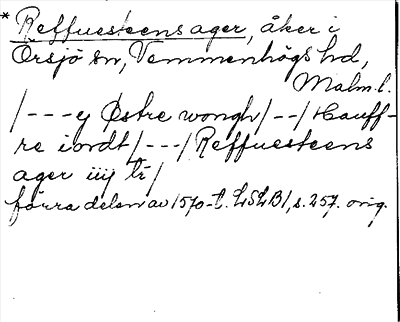 * Reffuesteens ager, åker i
Örsjö sn, Vemmenhögs hd,
Malm. l.
/---y Østre wongh/--/Hauff-
re iordt/---/Reffuesteens
ager iiij tr/
förra delen av 1570-t. LSLB1, s. 257. orig.